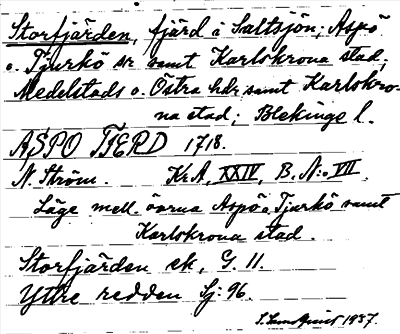 Storfjärden, fjärd i Saltsjön; Aspö
o. Tjurkö sr samt Karlskrona stad;
Medelstads o. Östra hdr samt Karlskro-
na stad; Blekinge l.
ASPO FIERD 1718.
N. Ström. Kr.A, XXIV, B. N:o VII.
Läge mell. öarna Aspö o. Tjurkö samt
Karlskrona stad.
Storfjärden ek, G. 11.
Yttre redden Sj: 96.
1937.